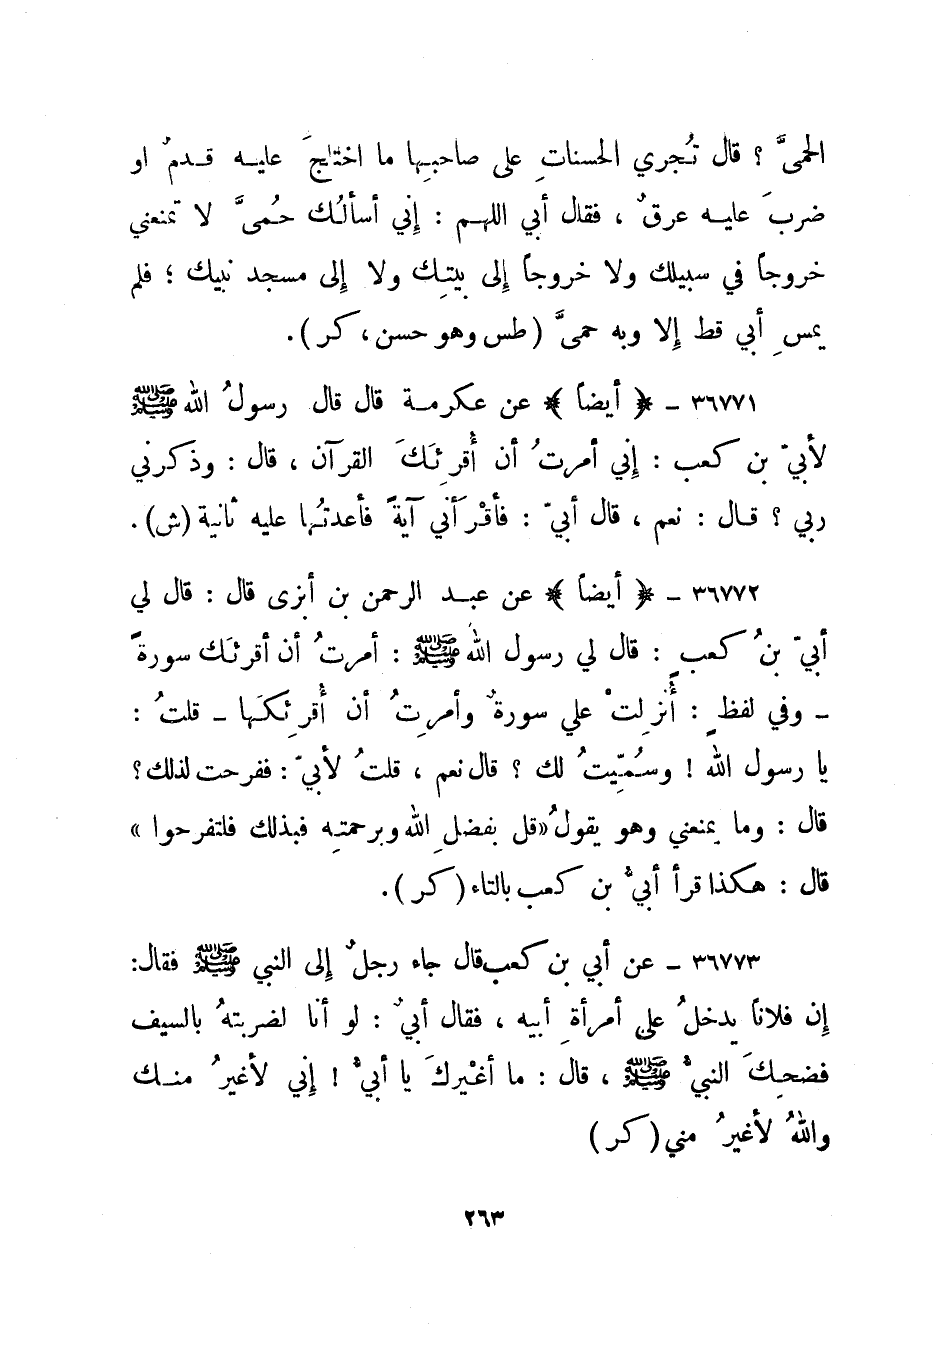 الحمىَّ ؟ قال تُجري الحسناتِ على صاحبِها ما اختلجَ عليه قدمٌ او
ضربَ عليه عرقٌ ، فقال أبي اللهم : إِني أسألُك حُمىَّ لا تمنعني
خروجاً في سبيلك ولا خروجاً إِلى بيتِك ولا إِلى مسجد نبيك ؛ فلم
يمسِ أبي قط إِلا وبه حمىَّ ( طس وهو حسن ، كر ) .
٣٦٧٧١ ـ ﴿ أيضاً ﴾ عن عكرمة قال قال رسولُ الله ﷺ
لأبيّ بن كعب : إِني أمرتُ أن أُقرِئَكَ القرآن ، قال : وذكرني
ربي ؟ قال : نعم ، قال أبيّ : فأقْرَأَني آيةً فأعدتُها عليه ثانية (ش) .
٣٦٧٧٢ ـ ﴿ أيضاً ﴾ عن عبد الرحمن بن أبزى قال : قال لي
أبيّ بنُ كعبٍ : قال لي رسول الله ﷺ : أمرتُ أن أقرئَك سورةً
ـ وفي لفظٍ : أُنزِلتْ علي سورةٌ وأمرِتُ أن أُقرِئكَها ـ قلتُ :
يا رسول الله ! وسُمِّيتُ لك ؟ قال نعم ، قلتُ لأبيّ : ففرحت لذلك ؟
قال : وما يمنعني وهو يقولُ «قل بفضلِ الله وبرحمتِه فبذلك فلتفرحوا »
قال : هكذا قرأ أبيُّ بن كعب بالتاء ( كر ) .
٣٦٧٧٣ ـ عن أبي بن كعب قال جاء رجلٌ إِلى النبي ﷺ فقال:
إِن فلاناً يدخلُ على أمرأةِ أبيه ، فقال أبيٌ : لو أنا لضربتهُ بالسيف
فضحِكَ النبيُّ ﷺ ، قال : ما أغْيركَ يا أبيُّ ! إِني لأغيرُ منك
واللهُ لأغيرُ مني ( كر )
٢٦٣